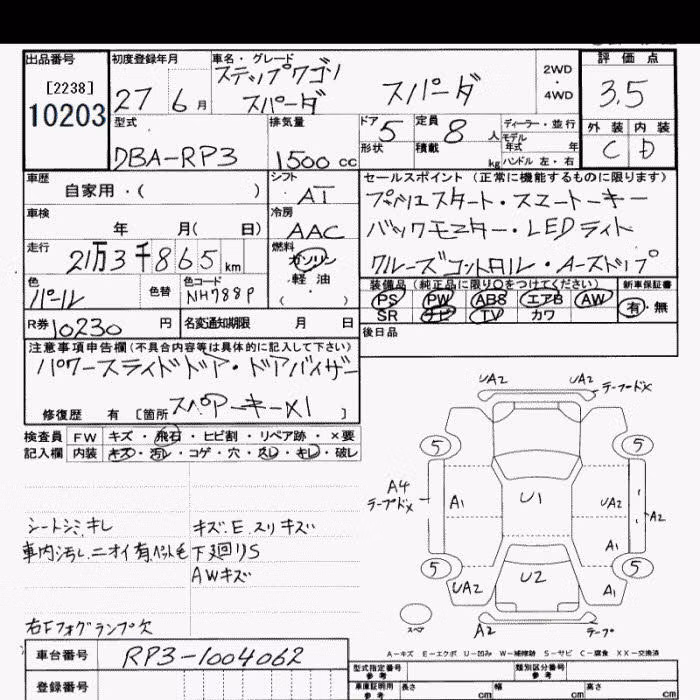 出品番号 初度登録年月 車名・グレード 評価点
[2238] 27 6月 ステップワゴン スパーダ 2WD・4WD 3.5
10203 スパーダ
型式 排気量 ドア 5 定員 8人 ディーラー・並行 外装 内装
DBA-RP3 1500cc 形状 積載 kg モデル年式 年 C D
ハンドル 左・右
車歴 シフト セールスポイント (正常に機能するものに限ります)
自家用・( ) AT プッシュスタート・スマートキー
車検 冷房 バックモニター・LEDライト
年 月( 日) AAC クルーズコントロル・A-ストップ
走行 燃料
21万3千865km ガソリン・軽油・( )
色 色替 色コード 装備品(純正品に限り○をつけてください) 新車保証書
パール NH788P PS PW ABS エアB AW 有・無
SR ナビ TV カワ
R券 10230円 名変通知期限 月 日 後日品
注意事項申告欄(不具合内容等は具体的に記入して下さい)
パワースライドドア・ドアバイザー
スペアーキー×1
修復歴 有 [箇所 ]
検査員 FW キズ・飛石・ヒビ割・リペア跡・×要
記入欄 内装 キズ・汚レ・コゲ・穴・スレ・キレ・破レ
UA2 UA2 テープドメ
5 5
A4 テープドメ A1 U1 UA2 A2
A1
5 5
UA2 U2 A1
スペア A2 テープ
シートシミ、キレ キズ、E、スリキズ
車内汚レ、ニオイ有、ペット毛 下廻りS
AWキズ
右Fフォグランプ欠
A-キズ E-エクボ U-凹み W-補修跡 S-サビ C-腐食 XX-交換済
車台番号 RP3-1004062 型式指定番号 参考 類別区分番号 参考
登録番号 車庫証明用 参考 長さ cm 幅 cm 高さ cm